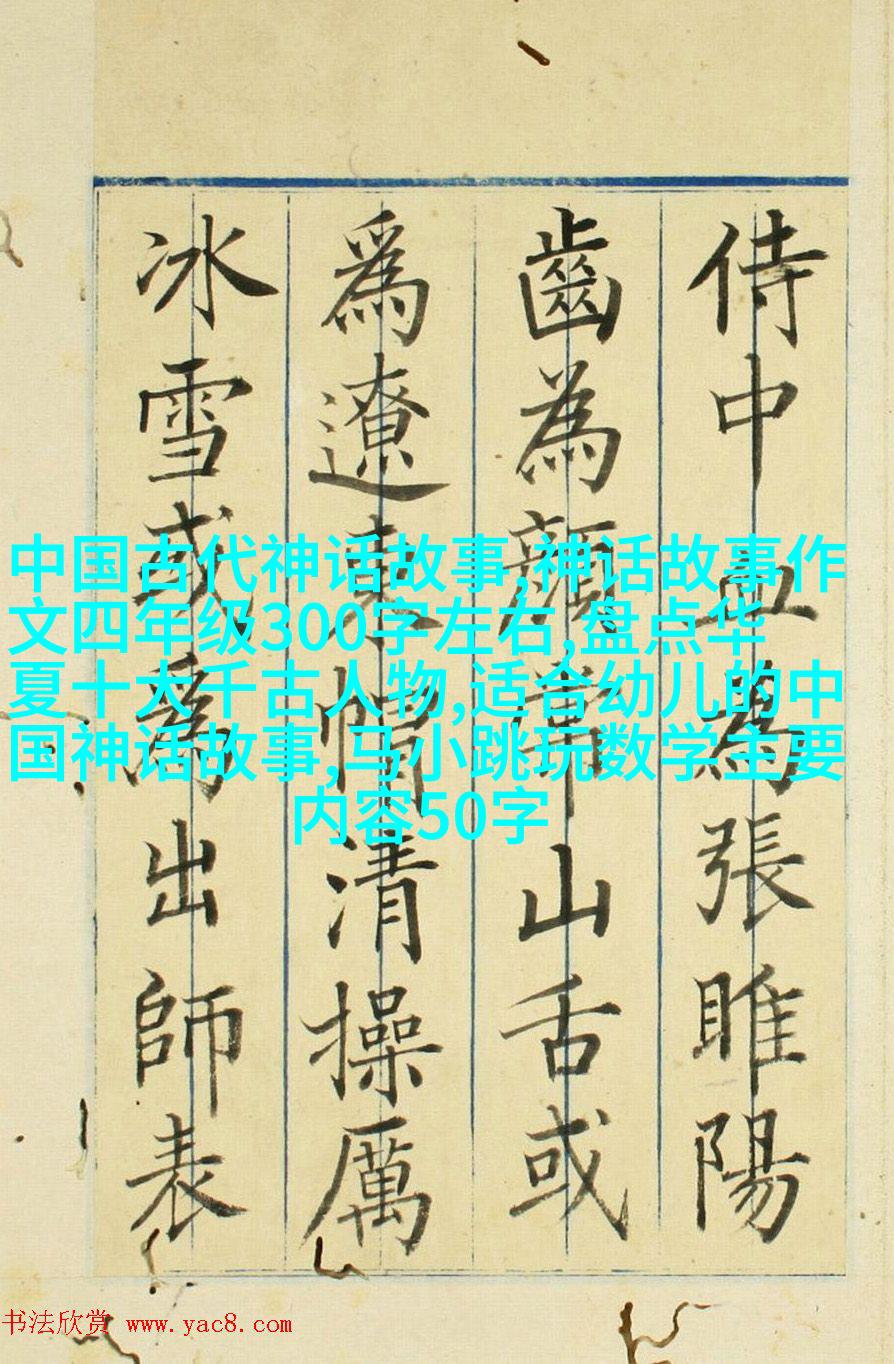 侍中血為張睢陽
齒為顏常山舌或
爲遼東帽清操厲
冰雪或爲出師表
中国古代神话故事,神话故事作
文四年级300字左右,盘点华
夏十大千古人物,适合幼儿的中
国神话故事,马小跳玩数学主要
内容50字
书法欣赏 www.yac8.com